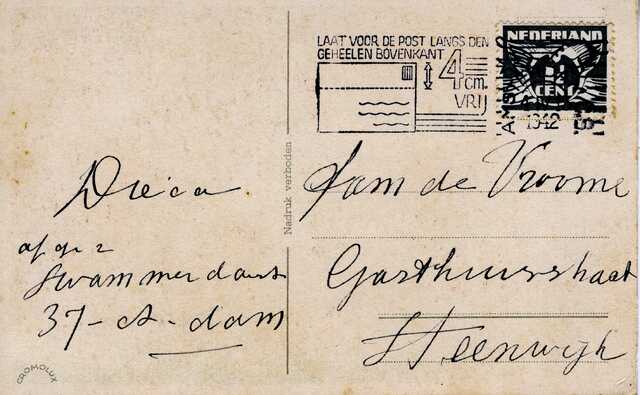 LAAT VOOR DE POST LANGS DEN
GEHEELEN BOVENKANT 4 cm.
VRIJ
NEDERLAND
CENT
1942
Nadruk verboden
Dieca
afge 2
Swammerdamst
37-A-dam
Fam de Vroome
Gasthuisstraat
Steenwijk
CROMOLUX